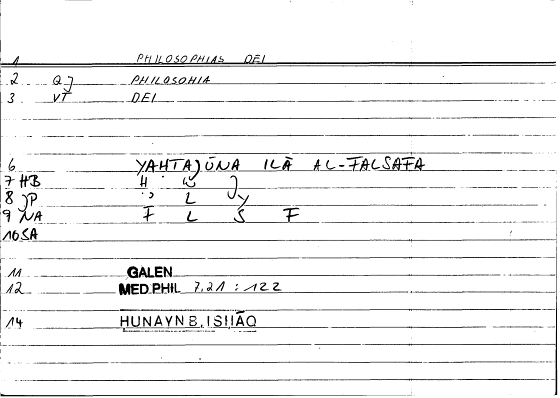 1 PHILOSOPHIAS DEI
2 QJ PHILOSOHIA
3 VT DEI
6 YAHTAJŪNA ILĀ AL-FALSAFA
7 HB H W J
8 JP ' L Y
9 NA F L S F
10 SA
11 GALEN
12 MED.PHIL 7,21 : 122
14 HUNAYN B. ISHĀQ